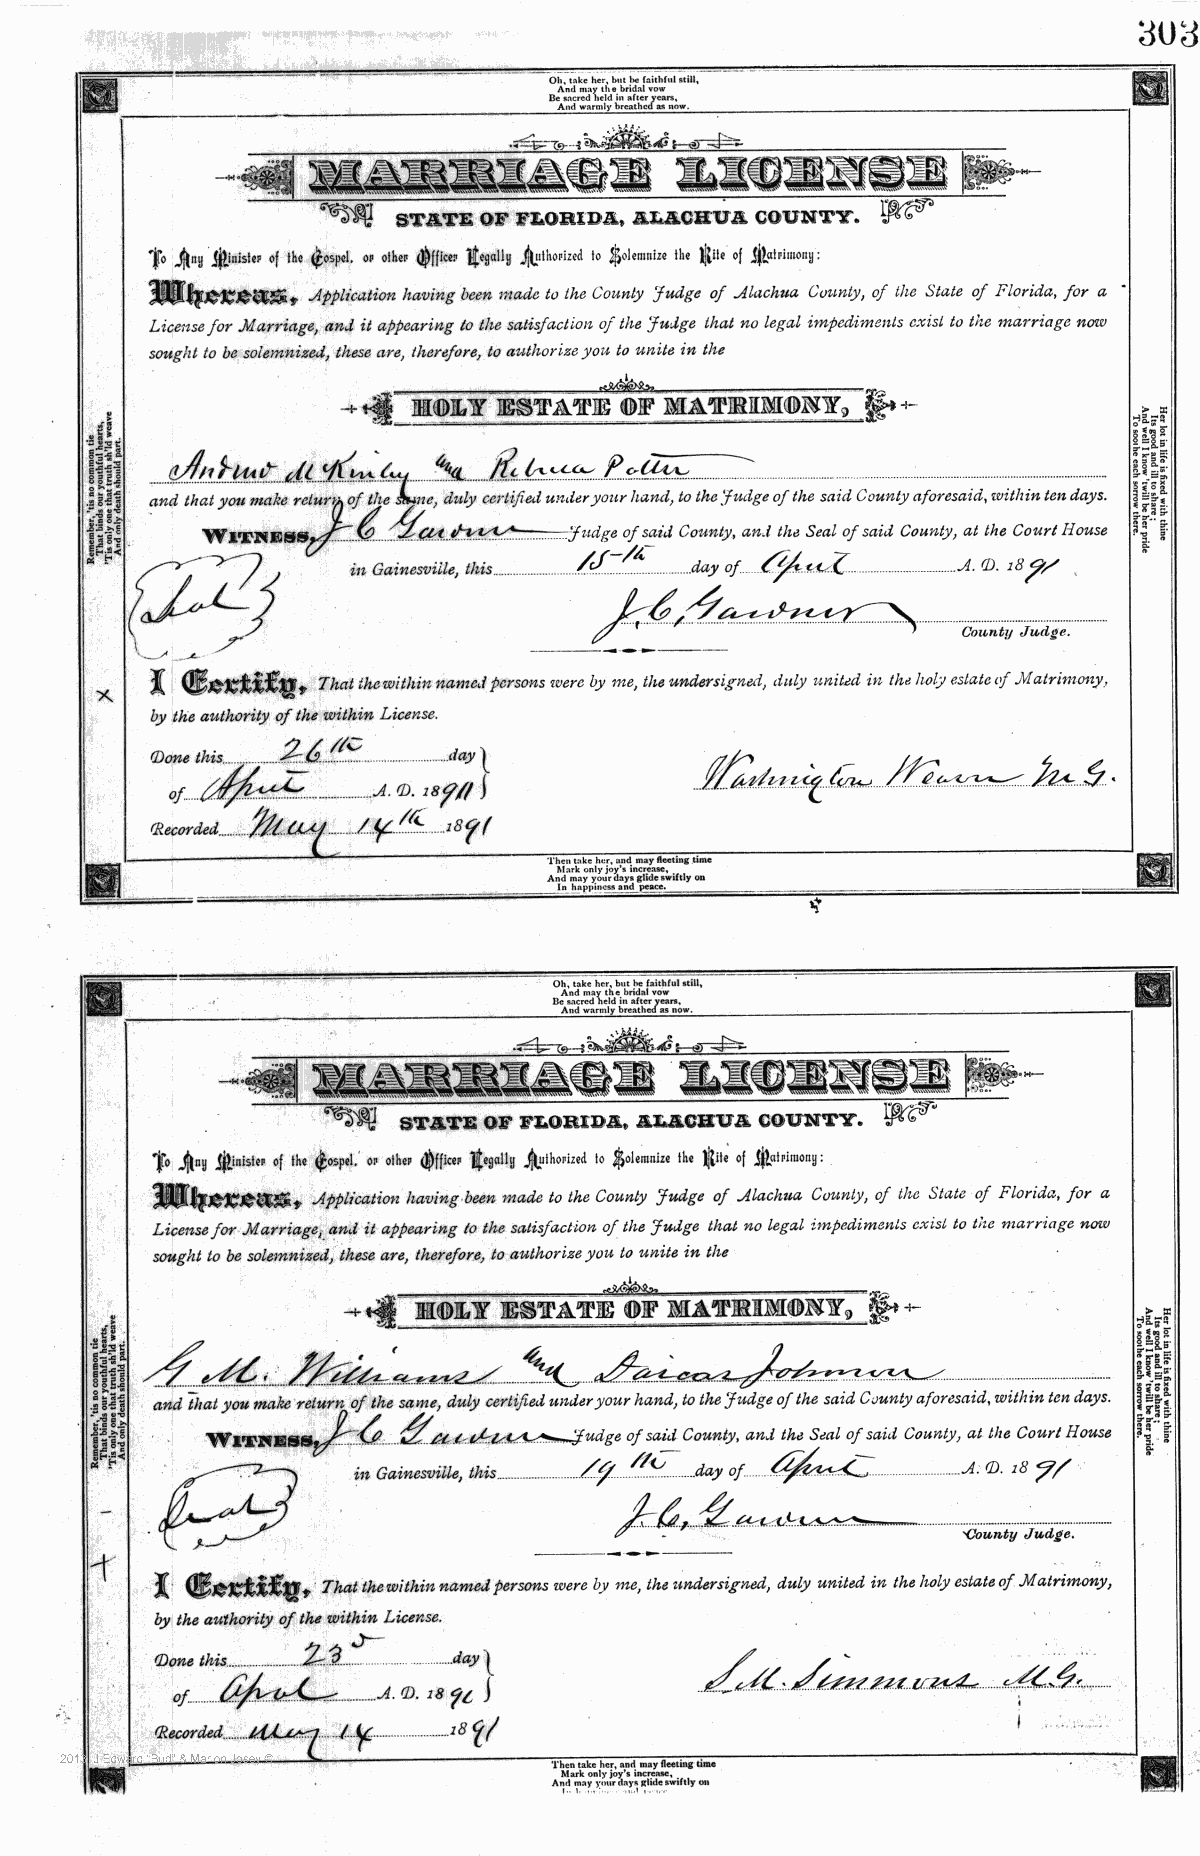 303
Oh, take her, but be faithful still,
And may the bridal vow
Be sacred held in after years,
And warmly breathed as now.
MARRIAGE LICENSE
STATE OF FLORIDA, ALACHUA COUNTY.
To Any Minister of the Gospel, or other Officer Legally Authorized to Solemnize the Rite of Matrimony:
Whereas, Application having been made to the County Judge of Alachua County, of the State of Florida, for a
License for Marriage, and it appearing to the satisfaction of the Judge that no legal impediments exist to the marriage now
sought to be solemnized, these are, therefore, to authorize you to unite in the
HOLY ESTATE OF MATRIMONY,
Andrew McKinley and Rebecca Potter
and that you make return of the same, duly certified under your hand, to the Judge of the said County aforesaid, within ten days.
WITNESS, J C Gardner Judge of said County, and the Seal of said County, at the Court House
in Gainesville, this 15th day of April A. D. 1891
Seal
J. C. Gardner
County Judge.
I Certify, That the within named persons were by me, the undersigned, duly united in the holy estate of Matrimony,
by the authority of the within License.
Done this 26th day
of April A. D. 1891
Washington Weaver M G.
Recorded May 14th 1891
Remember, 'tis no common tie
That binds our youthful hearts,
'Tis only one that truth sh'ld weave
And only death should part.
Her lot in life is fixed with thine
Its good and ill to share;
And well I know 'twill be her pride
To soothe each sorrow there.
Then take her, and may fleeting time
Mark only joy's increase,
And may your days glide swiftly on
In happiness and peace.
Oh, take her, but be faithful still,
And may the bridal vow
Be sacred held in after years,
And warmly breathed as now.
MARRIAGE LICENSE
STATE OF FLORIDA, ALACHUA COUNTY.
To Any Minister of the Gospel, or other Officer Legally Authorized to Solemnize the Rite of Matrimony:
Whereas, Application having been made to the County Judge of Alachua County, of the State of Florida, for a
License for Marriage, and it appearing to the satisfaction of the Judge that no legal impediments exist to the marriage now
sought to be solemnized, these are, therefore, to authorize you to unite in the
HOLY ESTATE OF MATRIMONY,
G M. Williams and Dorcas Johnson
and that you make return of the same, duly certified under your hand, to the Judge of the said County aforesaid, within ten days.
WITNESS, J C Gardner Judge of said County, and the Seal of said County, at the Court House
in Gainesville, this 19th day of April A. D. 1891
Seal
J. C. Gardner
County Judge.
I Certify, That the within named persons were by me, the undersigned, duly united in the holy estate of Matrimony,
by the authority of the within License.
Done this 23d day
of April A. D. 1891
S. M. Simmons M. G.
Recorded May 14 1891
Remember, 'tis no common tie
That binds our youthful hearts,
'Tis only one that truth sh'ld weave
And only death should part.
Her lot in life is fixed with thine
Its good and ill to share;
And well I know 'twill be her pride
To soothe each sorrow there.
J Edward "Bud" &
Then take her, and may fleeting time
Mark only joy's increase,
And may your days glide swiftly on
In happiness and peace.